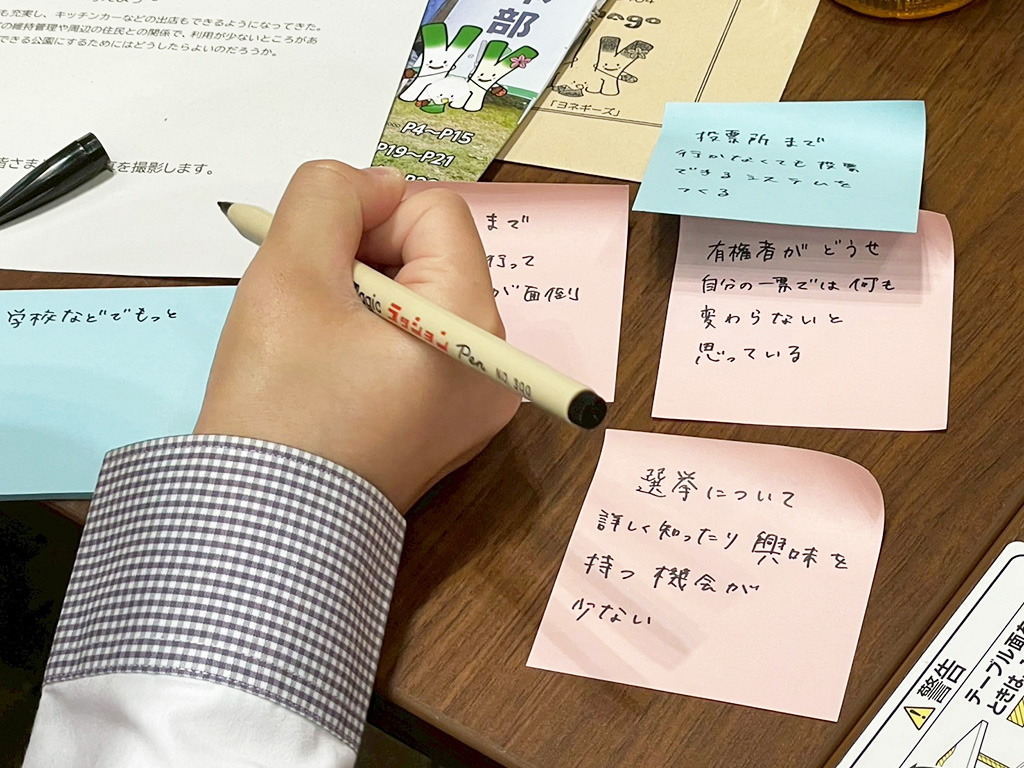 も充実し、キッチンカーなどの出店もできるようになってきた。
の維持管理や周辺の住民との関係で、利用が少ないところがあ
できる公園にするためにはどうしたらよいのだろうか。
皆さま
を撮影します。
部
P4〜P15
P19〜P21
ngo
「ヨネギーズ」
投票所まで
行かなくても投票
できるシステムを
つくる
まで
行って
が面倒
有権者がどうせ
自分の一票では何も
変わらないと
思っている
学校などでもっと
Magic ラッション Pen No.300
選挙について
詳しく知ったり興味を
持つ機会が
少ない
警告
テーブル面を
ときは、